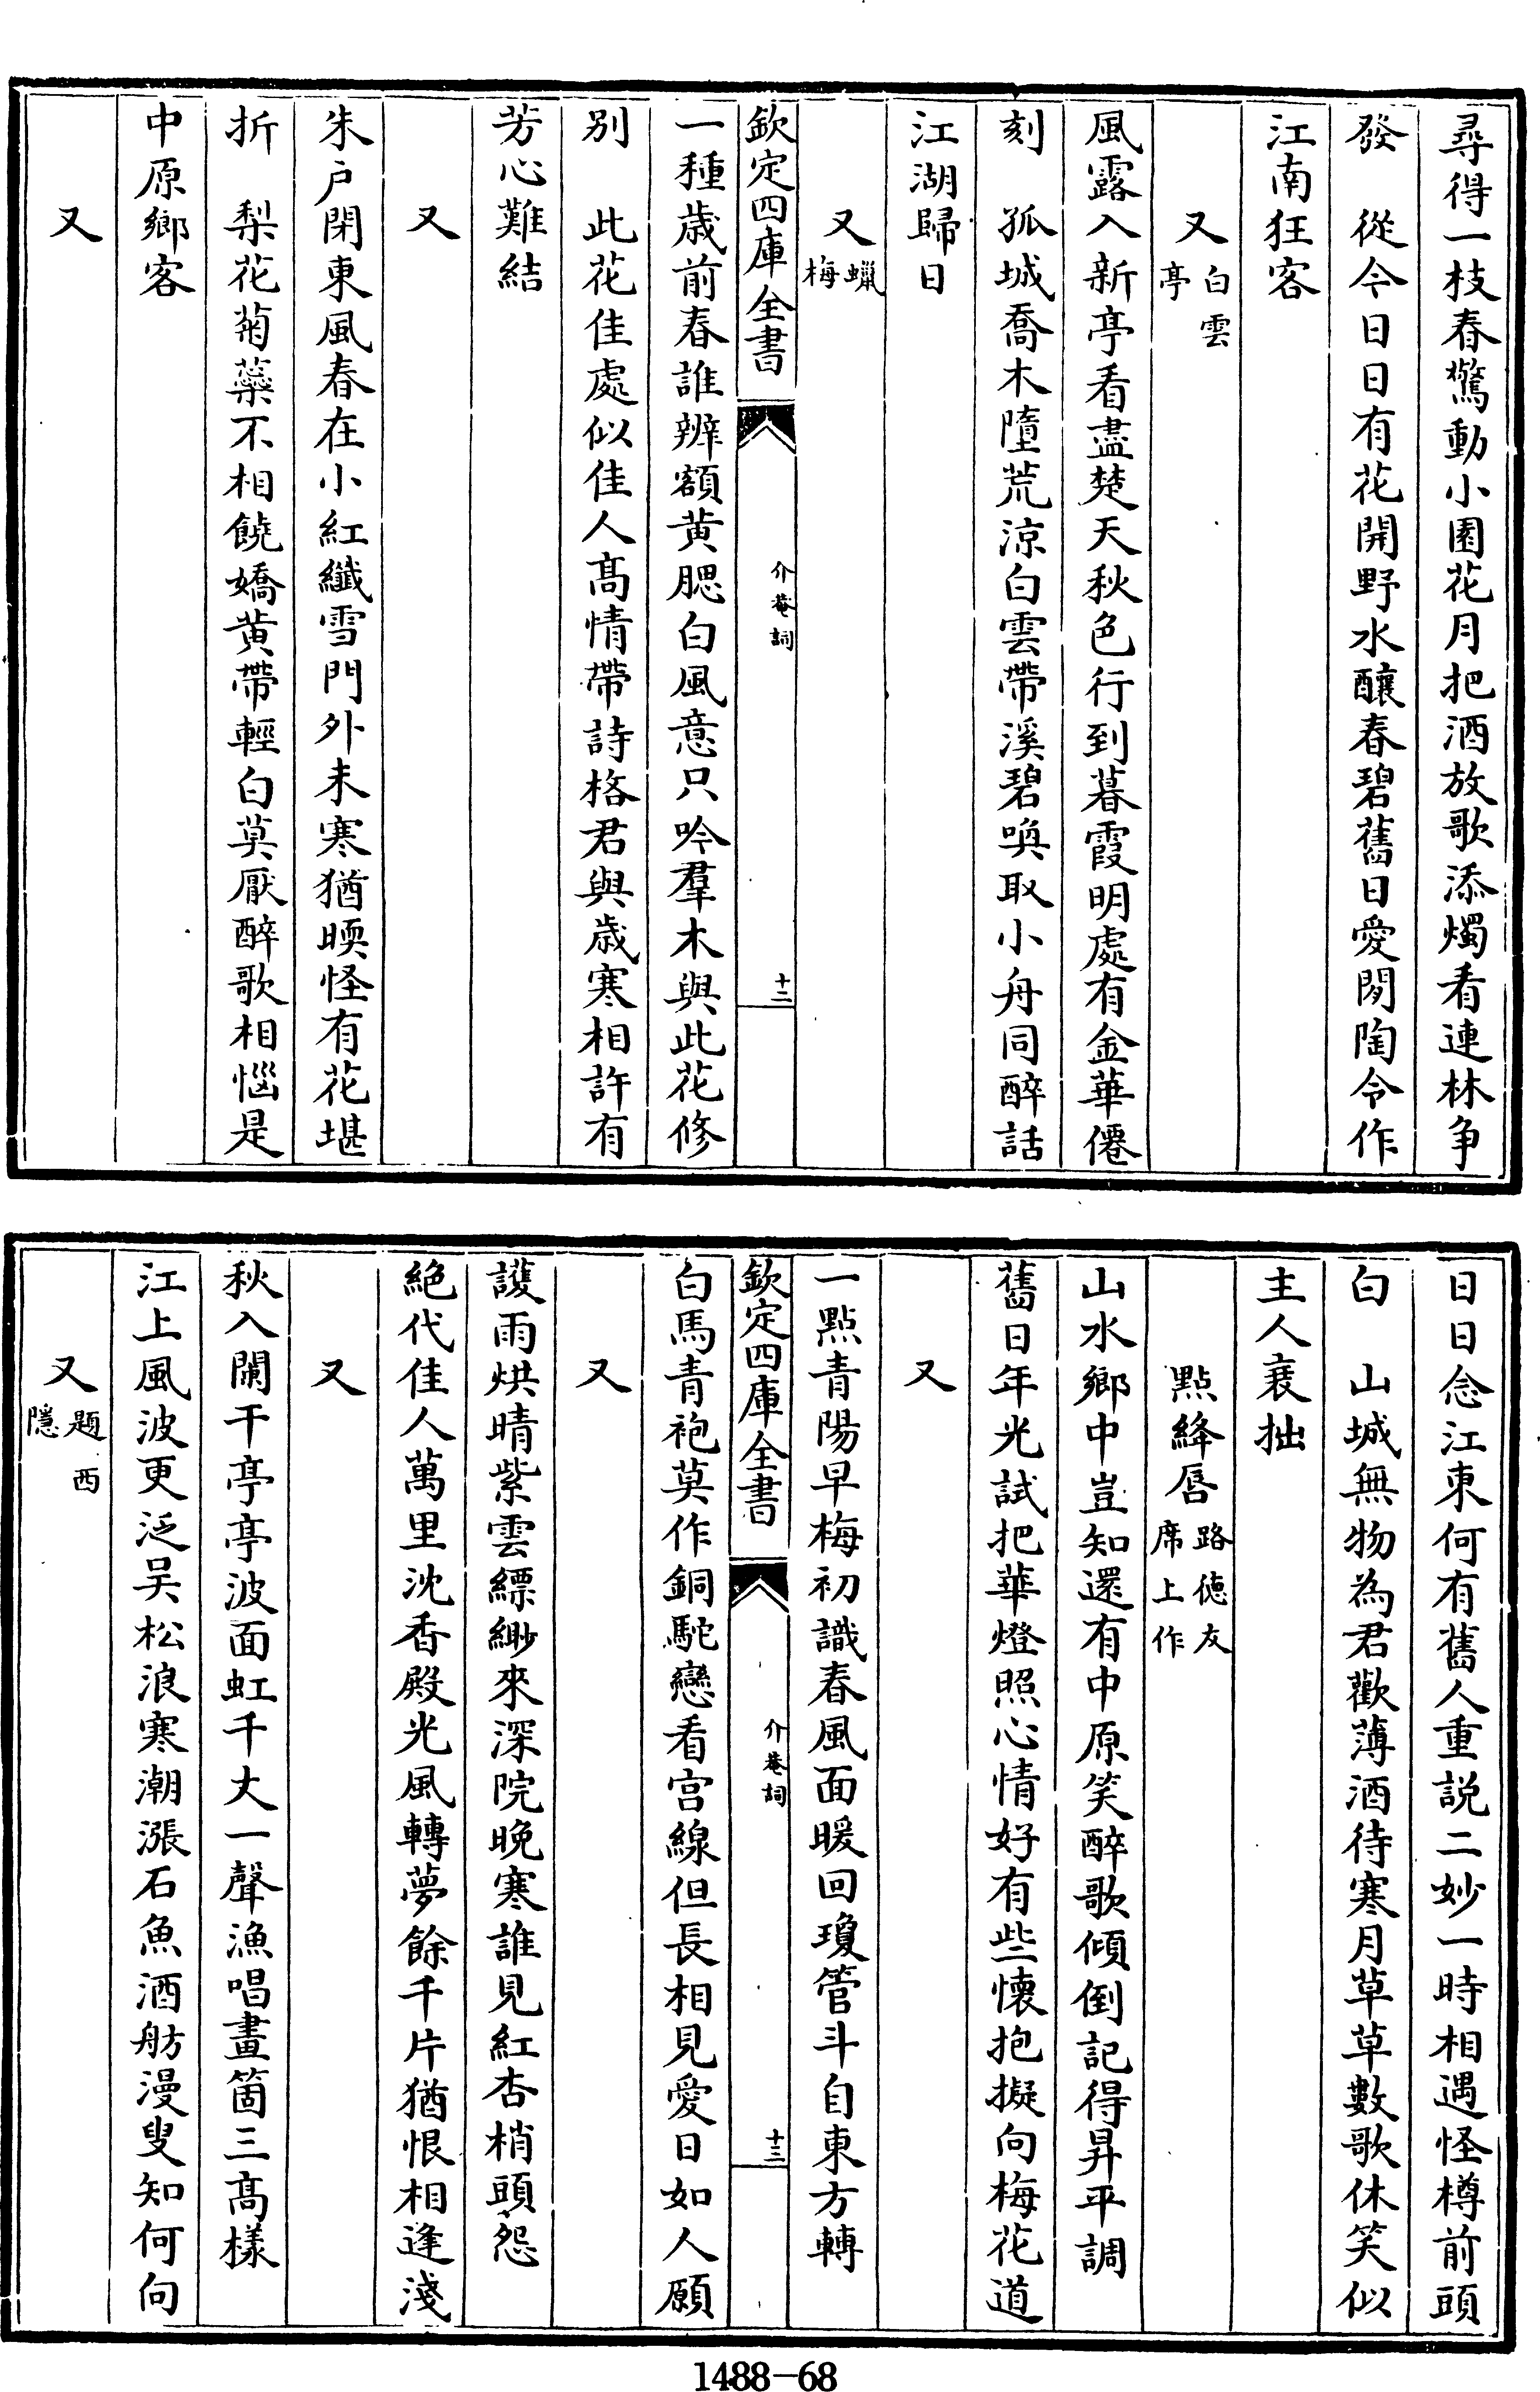 尋得一枝春驚動小園花月把酒放歌添燭看連林争
發　從今日日有花開野水釀春碧舊日愛閑陶令作
江南狂客
又白雲亭
風露入新亭看盡楚天秋色行到暮霞明處有金華僊
刻　孤城喬木墮荒凉白雲帶溪碧喚取小舟同醉話
江湖歸日
又蠟梅
欽定四庫全書
介菴詞
十二
一種歲前春誰辨額黄腮白風意只吟羣木與此花修
别　此花佳處似佳人髙情帶詩格君與歲寒相許有
芳心難結
又
朱户閑東風春在小紅纖雪門外未寒猶暎怪有花堪
折　梨花菊蘂不相饒嬌黄帶輕白莫厭醉歌相惱是
中原鄉客
又
日日念江東何有舊人重説二妙一時相遇怪樽前頭
白　山城無物為君歡薄酒待寒月草草數歌休笑似
主人衰拙
點絳唇路徳友席上作
山水鄉中豈知還有中原笑醉歌傾倒記得昇平調
舊日年光試把華燈照心情好有些懷抱擬向梅花道
又
一點青陽早梅初識春風面暖回瓊管斗自東方轉
欽定四庫全書
介菴詞
十三
白馬青袍莫作銅駝戀看宫線但長相見愛日如人願
又
護雨烘晴紫雲縹緲來深院晚寒誰見紅杏梢頭怨
絶代佳人萬里沈香殿光風轉夢餘千片猶恨相逢淺
又
秋入闌干亭亭波面虹千丈一聲漁唱畫箇三髙様
江上風波更泛吴松浪寒潮漲石魚酒舫漫叟知何向
又題西隱
1488-68